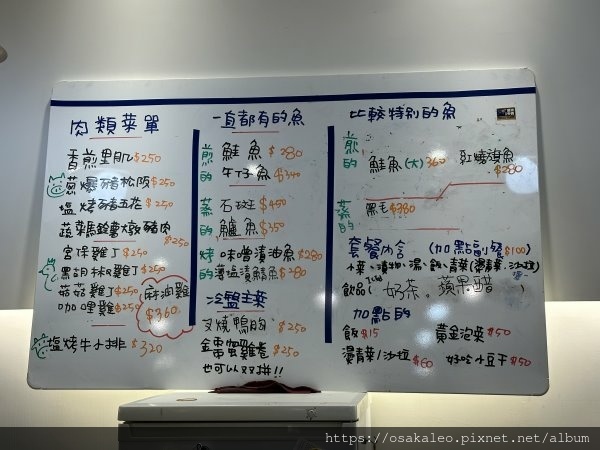 肉類菜單
香煎里肌 $250
蔥爆豬松阪 $250
塩烤豬五花 $250
蔬菜 豬肉
$250
宮保雞丁 $250
黑胡椒雞丁 $250
菇菇雞丁 $250
咖哩雞 $250
麻油雞
$360
塩烤牛小排 $320
一直都有的魚
煎的
鮭魚 $280
午仔魚 $340
蒸的
石斑 $450
鱸魚 $350
烤的
味噌漬油魚 $280
薄塩漬鯖魚 $280
冷盤主菜
叉燒鴨胸 $250
金雷蝦雞卷 $250
也可以双拼!!
比較特別的魚
煎的
鮭魚(大) 360
紅燒鯪魚
$280
蒸的
黑毛 $380
套餐內含 (加點副餐 $100)
小菜、漬物、湯、飯、青菜(燙青菜、沙拉)
飲品( 奶茶。蘋果醋
加點的
飯 $15
黃金泡菜 $50
燙青菜/沙拉 $60
好吃小豆干 $50
https://osakaleo.pixnet.net/album